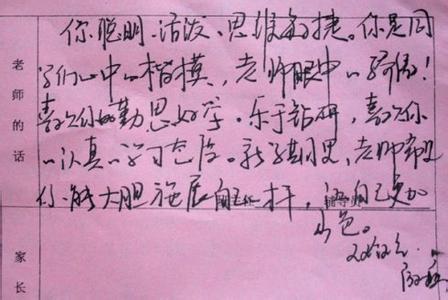 你聪明、活泼、思维敏捷。你是同
学们心中的楷模，老师眼中的骄傲！
喜欢你的勤思好学、乐于钻研，喜欢你
的认真的学习态度。新学期里，老师希望
你能大胆施展自己的才，让自己更加
出色。
老师的话
家长